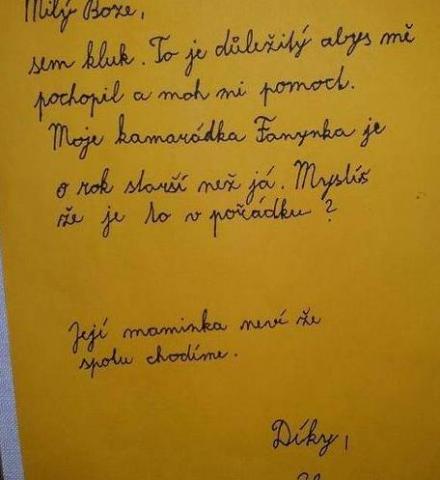 Milý Bože,
sem kluk. To je důležitý abys mě
pochopil a moh mi pomoct.
Moje kamarádka Fanynka je
o rok starší než já. Myslíš
že je to v pořádku?
Její maminka neví že
spolu chodíme.
Díky,